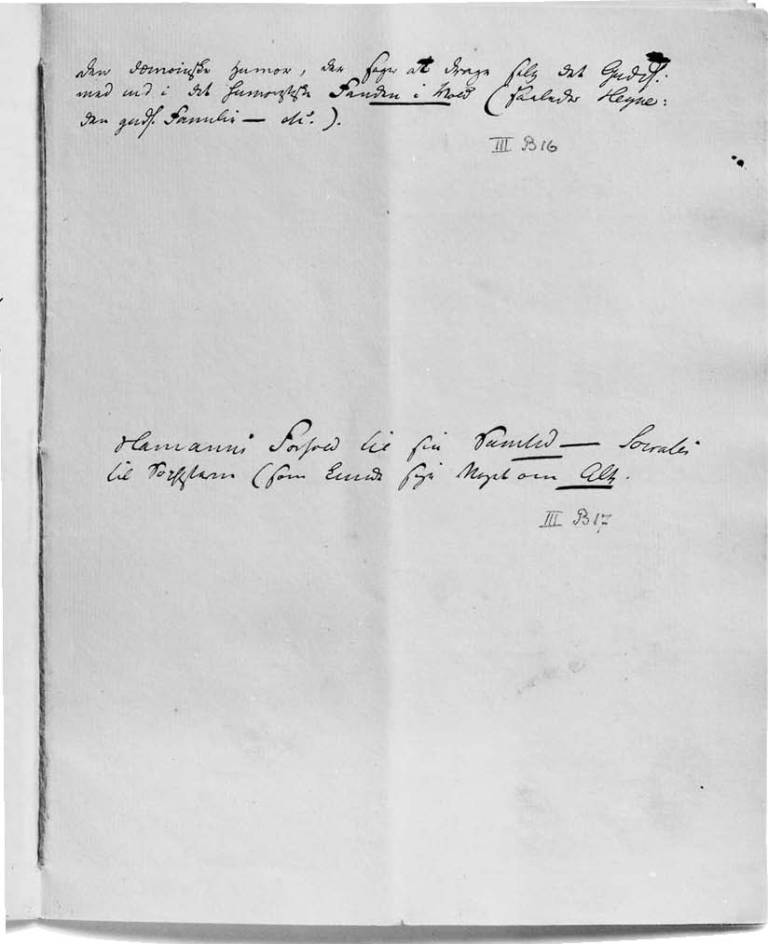 den dæmoniske Humor, der søger at drage selv det Gudd.
med ind i det humoristiske Fanden i Vold (saaledes Heyne:
den gudd. Familie — etc.).
III B16
Hamanns Forhold til sin Samtid — Socrates
til Sophisterne (som kunde sige Noget om Alt.
III B17